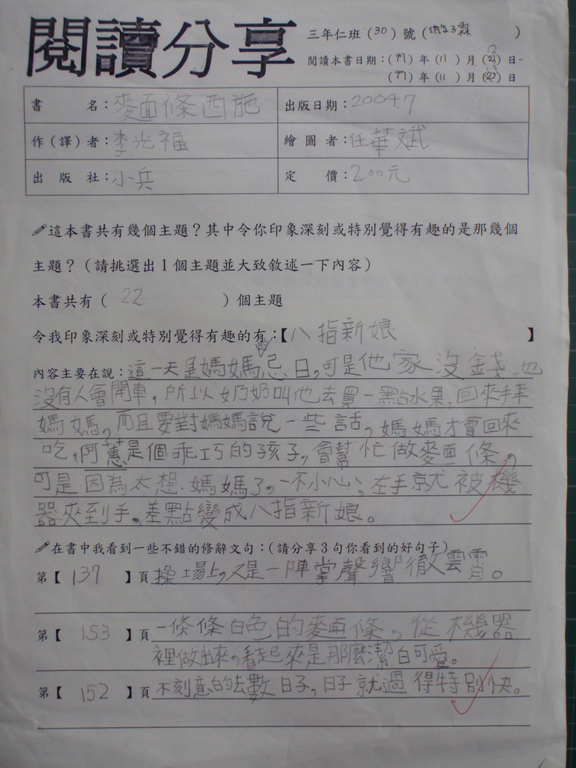 閱讀分享
三年仁班(30)號( )
閱讀本書日期:(97)年(11)月(21)日-
(97)年(11)月(23)日
書名:麵條西施 出版日期:2004.7
作(譯)者:李光福 繪圖者:任華斌
出版社:小兵 定價:200元
這本書共有幾個主題?其中令你印象深刻或特別覺得有趣的是那幾個
主題?(請挑選出1個主題並大致敘述一下內容)
本書共有(22)個主題
令我印象深刻或特別覺得有趣的有:【八指新娘】
內容主要在說:這一天是媽媽忌日,可是他家沒錢,也
沒有人會開車,所以奶奶叫他去買一點水果,回來拜
媽媽,而且要對媽媽說一些話,媽媽才會回來
吃,阿蕙是個乖巧的孩子,會幫忙做麵條,
可是因為太想媽媽了,一不小心,左手就被機
器夾到手。差點變成八指新娘。
在書中我看到一些不錯的修辭文句:(請分享3句你看到的好句子)
第【137】頁操場上,又是一陣掌聲響徹雲霄。
第【153】頁一條條白色的麵條,從機器
裡做出來,看起來是那麼潔白可愛。
第【152】頁不刻意的去數日子,日子就過得特別快。